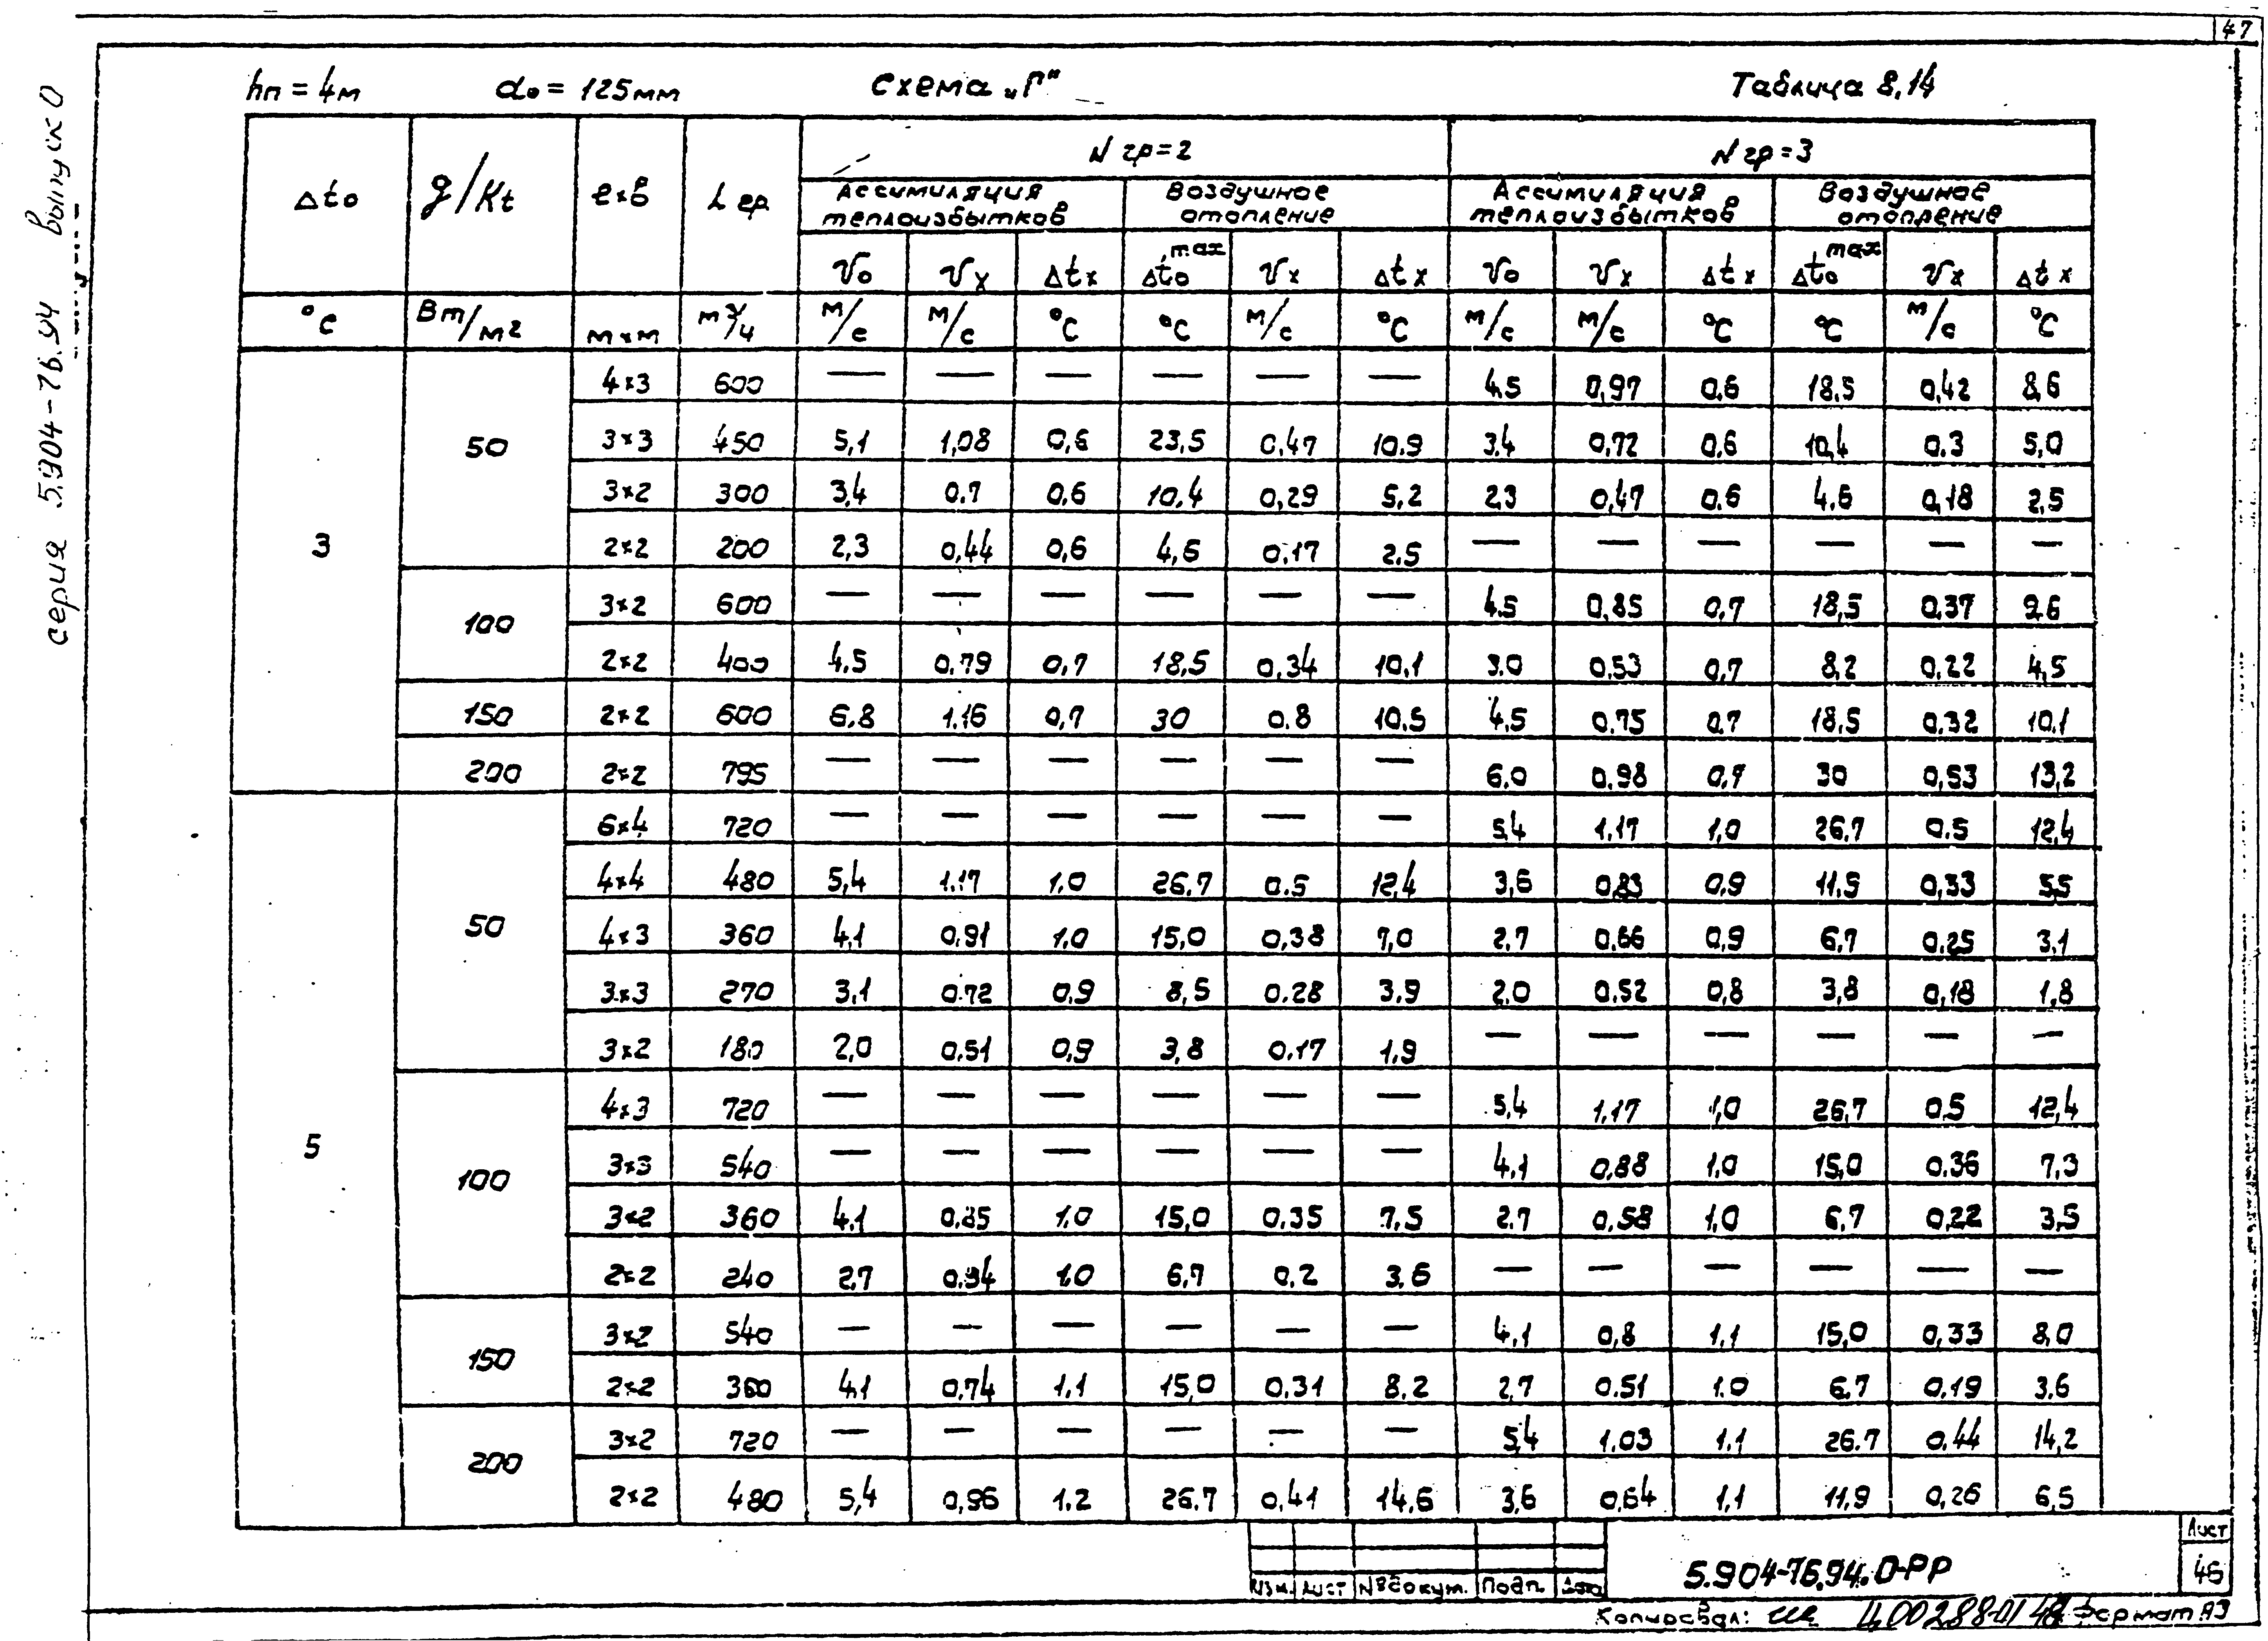 47
серия 5.904-76.94 выпуск 0
hп = 4м do = 125мм Схема „П" Таблица 8.14
Δto g/Kt ℓ×в L гр N гр=2 N гр=3
Ассимиляция теплоизбытков Воздушное отопление Ассимиляция теплоизбытков Воздушное отопление
Vo Vx Δtx Δto max Vx Δtx Vo Vx Δtx Δto max Vx Δtx
°C Вт/м2 м×м м3/ч м/с м/с °C °C м/с °C м/с м/с °C °C м/с °C
3 50 4×3 600 — — — — — — 4,5 0,97 0,6 18,5 0,42 8,6
3×3 450 5,1 1,08 0,6 23,5 0,47 10.9 3,4 0,72 0,6 10,4 0.3 5,0
3×2 300 3,4 0.7 0,6 10,4 0,29 5,2 2,3 0,47 0.6 4.6 0,18 2,5
2×2 200 2,3 0,44 0,6 4,6 0.17 2.5 — — — — — —
100 3×2 600 — — — — — — 4.5 0,85 0,7 18,5 0,37 9,6
2×2 400 4.5 0.79 0,7 18,5 0.34 10,1 3.0 0,53 0,7 8,2 0,22 4,5
150 2×2 600 6.8 1.16 0,7 30 0.8 10.5 4,5 0.75 0,7 18,5 0,32 10,1
200 2×2 795 — — — — — — 6.0 0,98 0,7 30 0,53 13,2
5 50 6×4 720 — — — — — — 5,4 1,17 1,0 26,7 0.5 12,4
4×4 480 5,4 1.17 1,0 26,7 0.5 12,4 3,6 0,83 0,9 11,9 0,33 5,5
4×3 360 4,1 0,91 1,0 15,0 0,38 7,0 2,7 0,66 0,9 6,7 0,25 3,1
3×3 270 3,1 0.72 0,9 8,5 0.28 3,9 2,0 0,52 0,8 3,8 0,18 1,8
3×2 180 2,0 0.51 0,9 3,8 0.17 1,9 — — — — — —
100 4×3 720 — — — — — — 5,4 1,17 1,0 26,7 0,5 12,4
3×3 540 — — — — — — 4,1 0,88 1,0 15,0 0.36 7,3
3×2 360 4,1 0,85 1,0 15,0 0,35 7,5 2.7 0,58 1,0 6,7 0,22 3,5
2×2 240 2,7 1,0 6,7 0,2 3,6 — — — — — —
150 3×2 540 — — — — — — 4,1 0,8 1,1 15,0 0,33 8,0
2×2 360 4,1 0,74 1,1 15,0 0,31 8,2 2,7 0.51 1.0 6,7 0,19 3,6
200 3×2 720 — — — — — — 5,4 1,03 1,1 26.7 0,44 14,2
2×2 480 5,4 0,96 1,2 26,7 0,41 14,6 3,6 0,64 1,1 11,9 0,26 6,5
Изм. Лист №докум. Подп. Дата
5.904-76.94.0-РР
Лист
46
Копировал: 400288-01 48 Формат А3